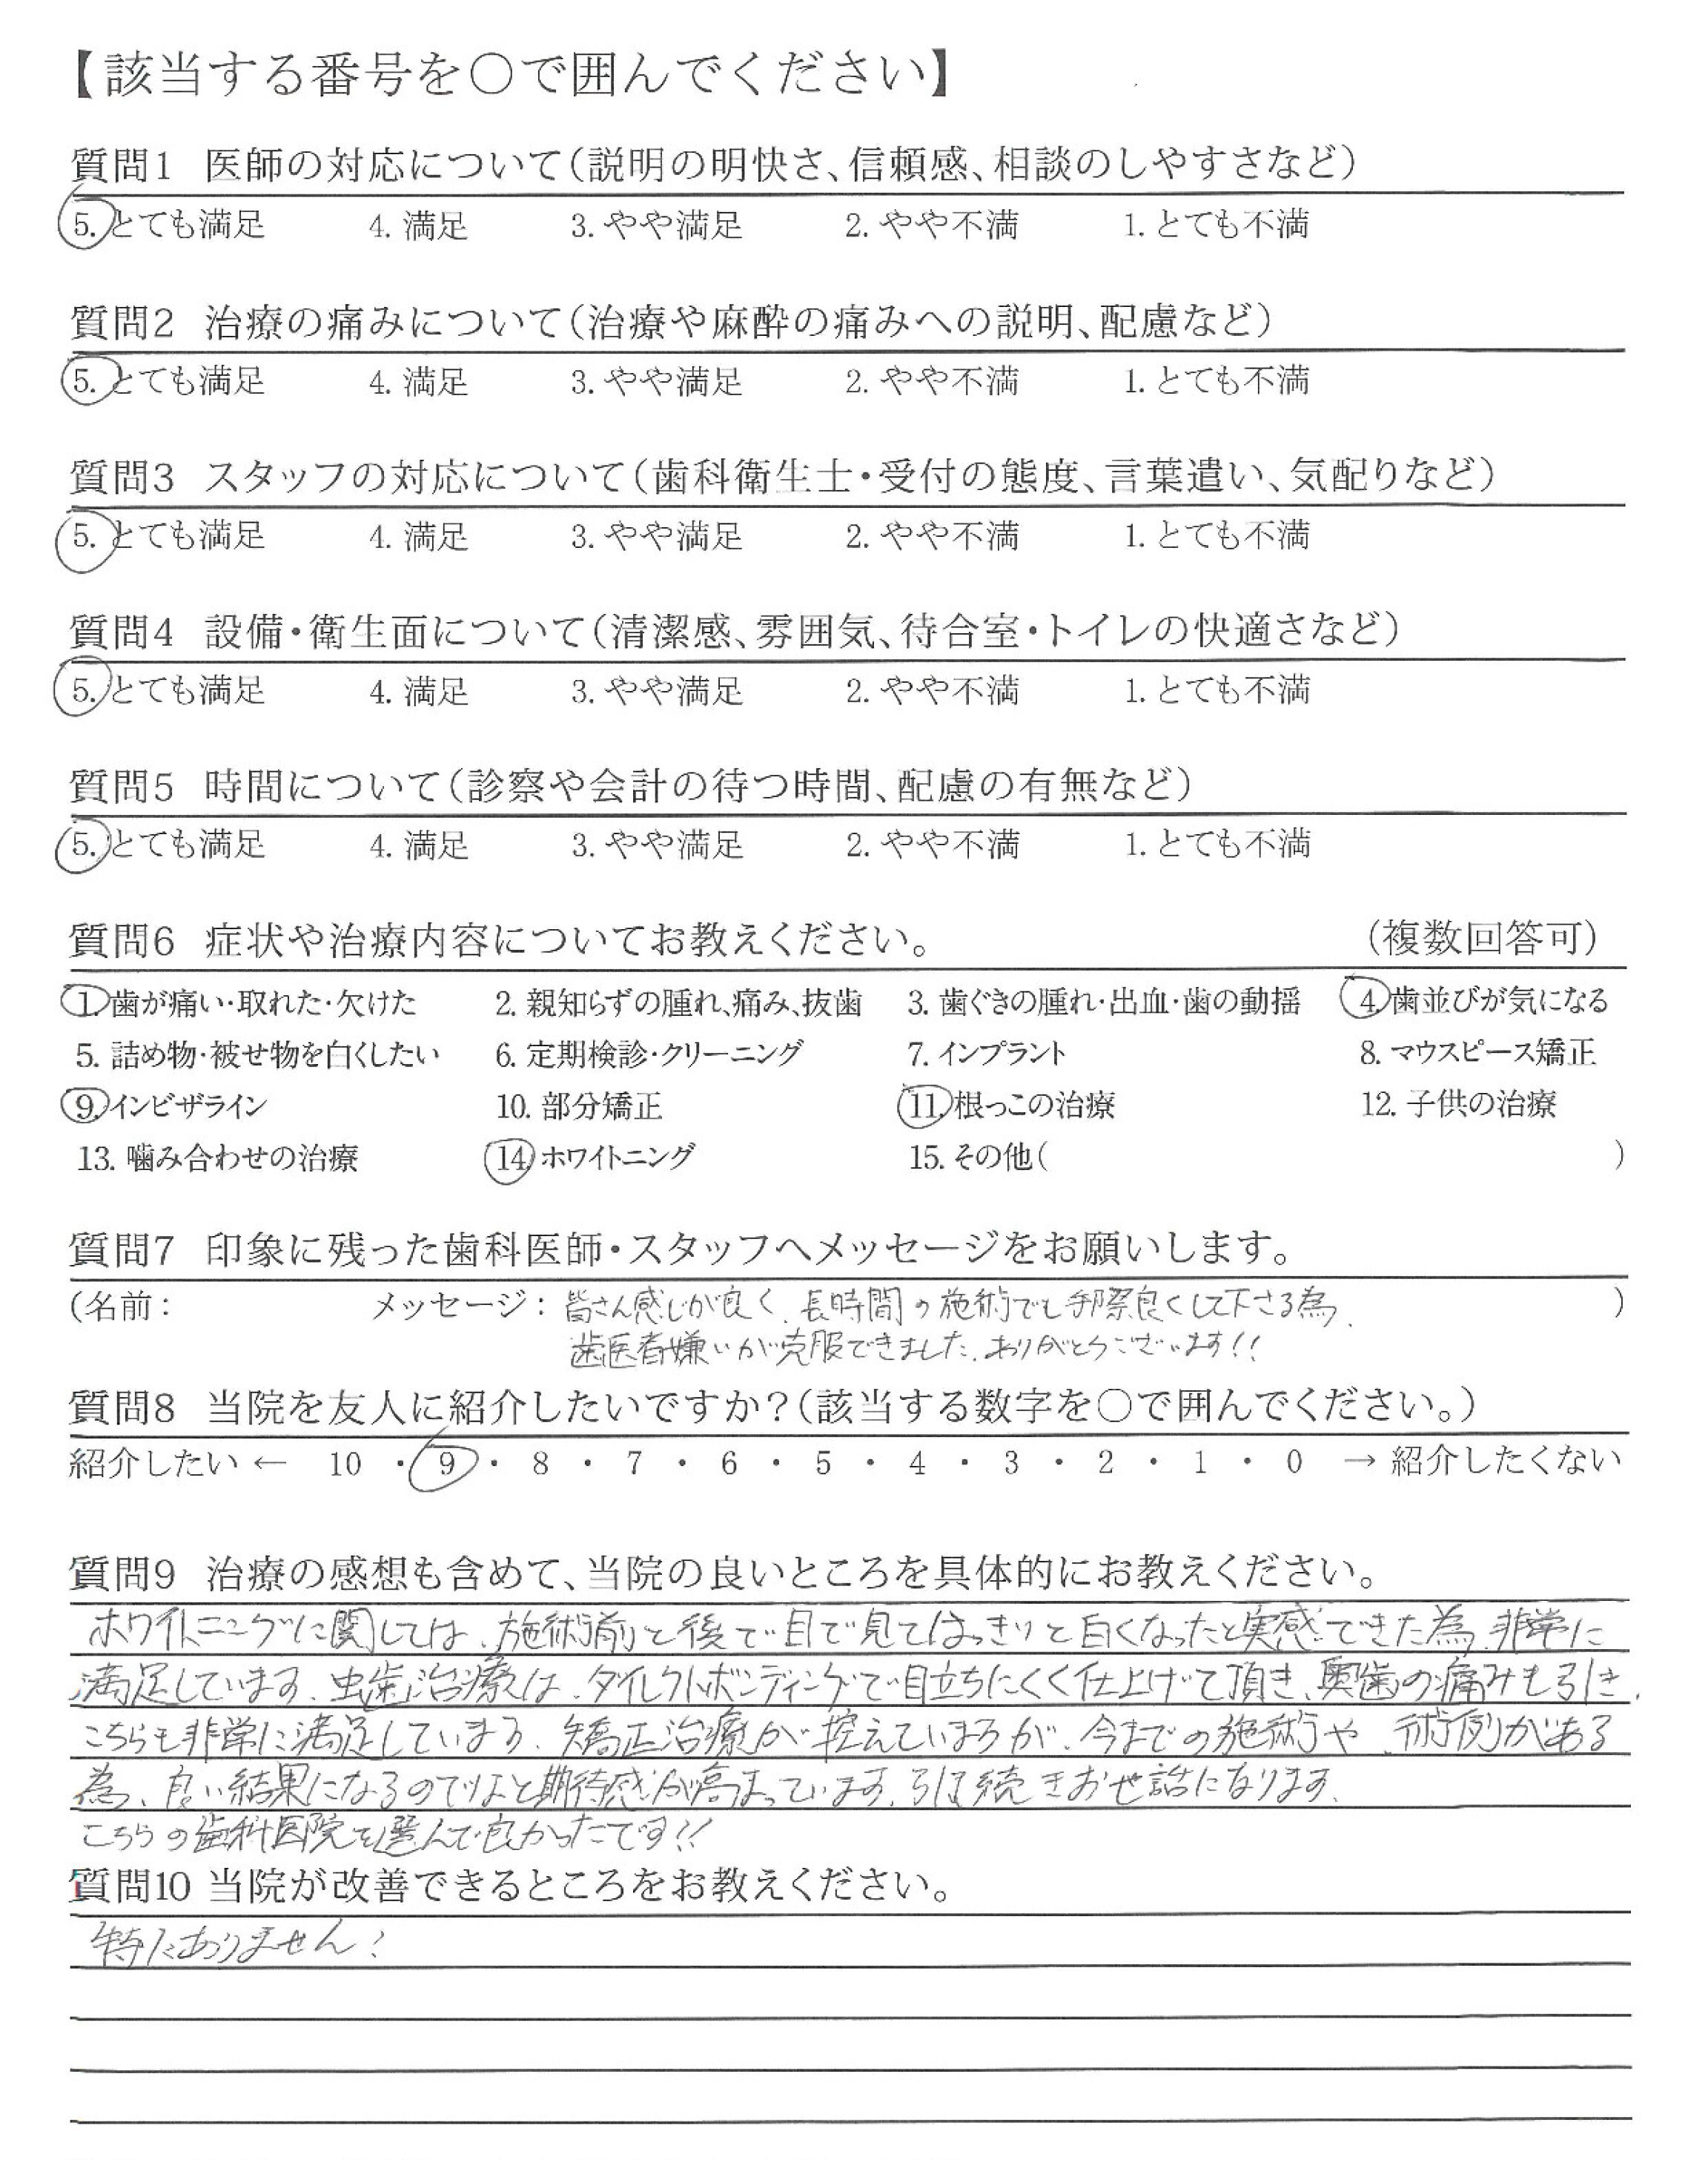 【該当する番号を○で囲んでください】
質問1 医師の対応について(説明の明快さ、信頼感、相談のしやすさなど)
5. とても満足 4. 満足 3. やや満足 2. やや不満 1. とても不満
質問2 治療の痛みについて(治療や麻酔の痛みへの説明、配慮など)
5. とても満足 4. 満足 3. やや満足 2. やや不満 1. とても不満
質問3 スタッフの対応について(歯科衛生士・受付の態度、言葉遣い、気配りなど)
5. とても満足 4. 満足 3. やや満足 2. やや不満 1. とても不満
質問4 設備・衛生面について(清潔感、雰囲気、待合室・トイレの快適さなど)
5. とても満足 4. 満足 3. やや満足 2. やや不満 1. とても不満
質問5 時間について(診察や会計の待つ時間、配慮の有無など)
5. とても満足 4. 満足 3. やや満足 2. やや不満 1. とても不満
質問6 症状や治療内容についてお教えください。 (複数回答可)
1. 歯が痛い・取れた・欠けた 2. 親知らずの腫れ、痛み、抜歯 3. 歯ぐきの腫れ・出血・歯の動揺 4. 歯並びが気になる
5. 詰め物・被せ物を白くしたい 6. 定期検診・クリーニング 7. インプラント 8. マウスピース矯正
9. インビザライン 10. 部分矯正 11. 根っこの治療 12. 子供の治療
13. 噛み合わせの治療 14. ホワイトニング 15. その他( )
質問7 印象に残った歯科医師・スタッフへメッセージをお願いします。
(名前: メッセージ: 皆さん感じが良く、長時間の施術でも手際良くして下さる為、 )
歯医者嫌いが克服できました。ありがとうございます!!
質問8 当院を友人に紹介したいですか?(該当する数字を○で囲んでください。)
紹介したい ← 10 ・ 9 ・ 8 ・ 7 ・ 6 ・ 5 ・ 4 ・ 3 ・ 2 ・ 1 ・ 0 → 紹介したくない
質問9 治療の感想も含めて、当院の良いところを具体的にお教えください。
ホワイトニングに関しては、施術前と後で目で見てはっきりと白くなったと実感できた為、非常に
満足しています。虫歯治療は、ダイレクトボンディングで目立ちにくく仕上げて頂き、奥歯の痛みも引き、
こちらも非常に満足しています。矯正治療が控えていますが、今までの施術や、術例がある
為、良い結果になるのではと期待感が高まっています。引き続きお世話になります。
こちらの歯科医院を選んで良かったです!!
質問10 当院が改善できるところをお教えください。
特にありません!